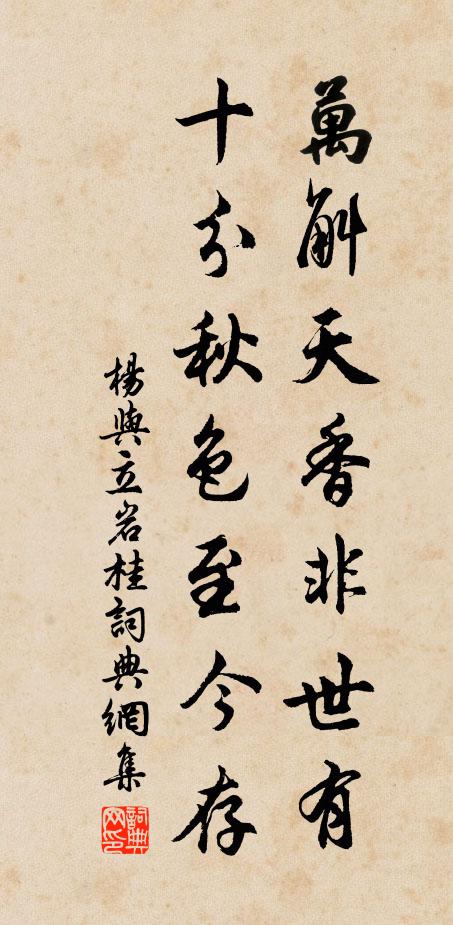 萬斛天香非世有
十分秋色至今存
楊與立岩桂詞典網集
詞典網印